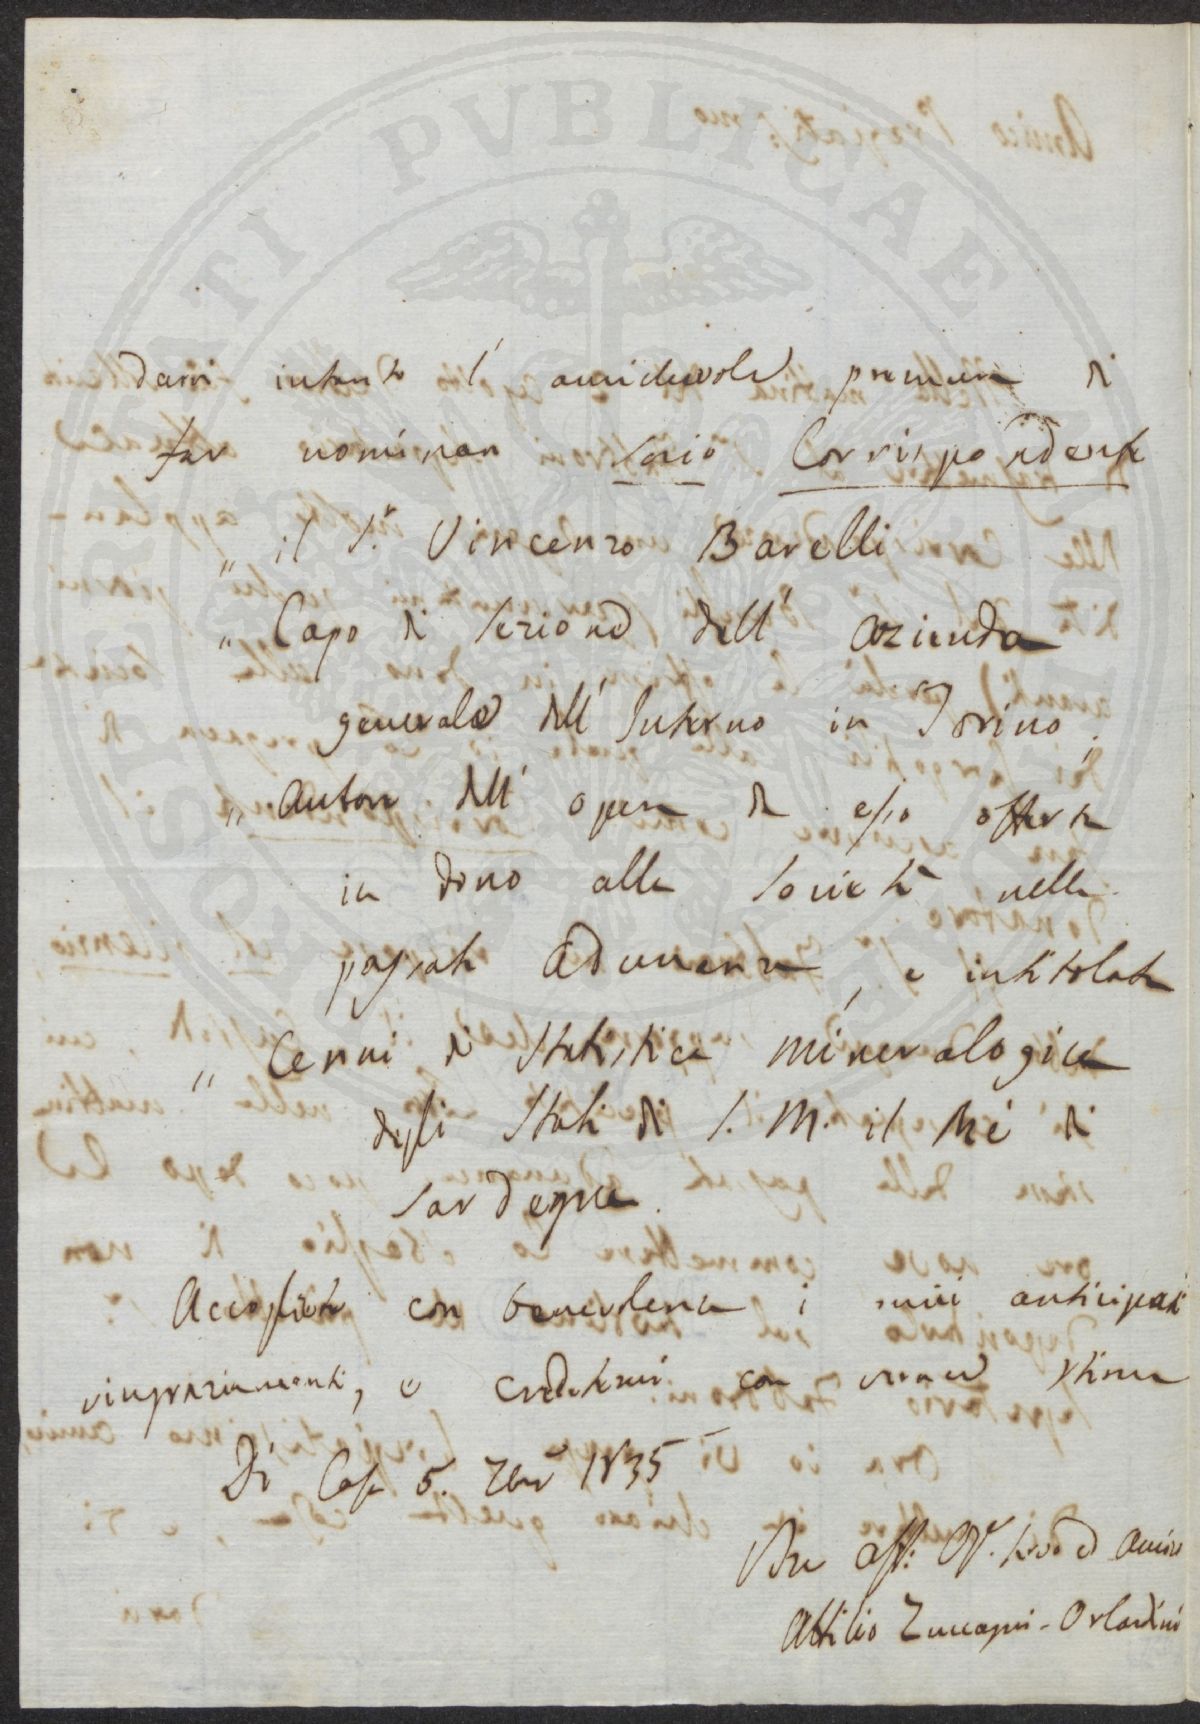 darvi intanto l'amichevole premura di
far nominare socio Corrispondente
„ il S.r Vincenzo Barelli
„ Capo di Sezione dell'azienda
generale dell'Interno in Torino,
„ autore dell'opera da esso offerta
in dono alla Società nella
passata Adunanza, e intitolata
„ Cenni di Statistica mineralogica
degli Stati di S. M. il Ré di
Sardegna.
Accogliete con benevolenza i miei anticipati
ringraziamenti, e credetemi con vera stima
Di Casa 5. 7bre 1835
Vro aff: Ob.o servo ed Amico
Attilio Zuccagni-Orlandini